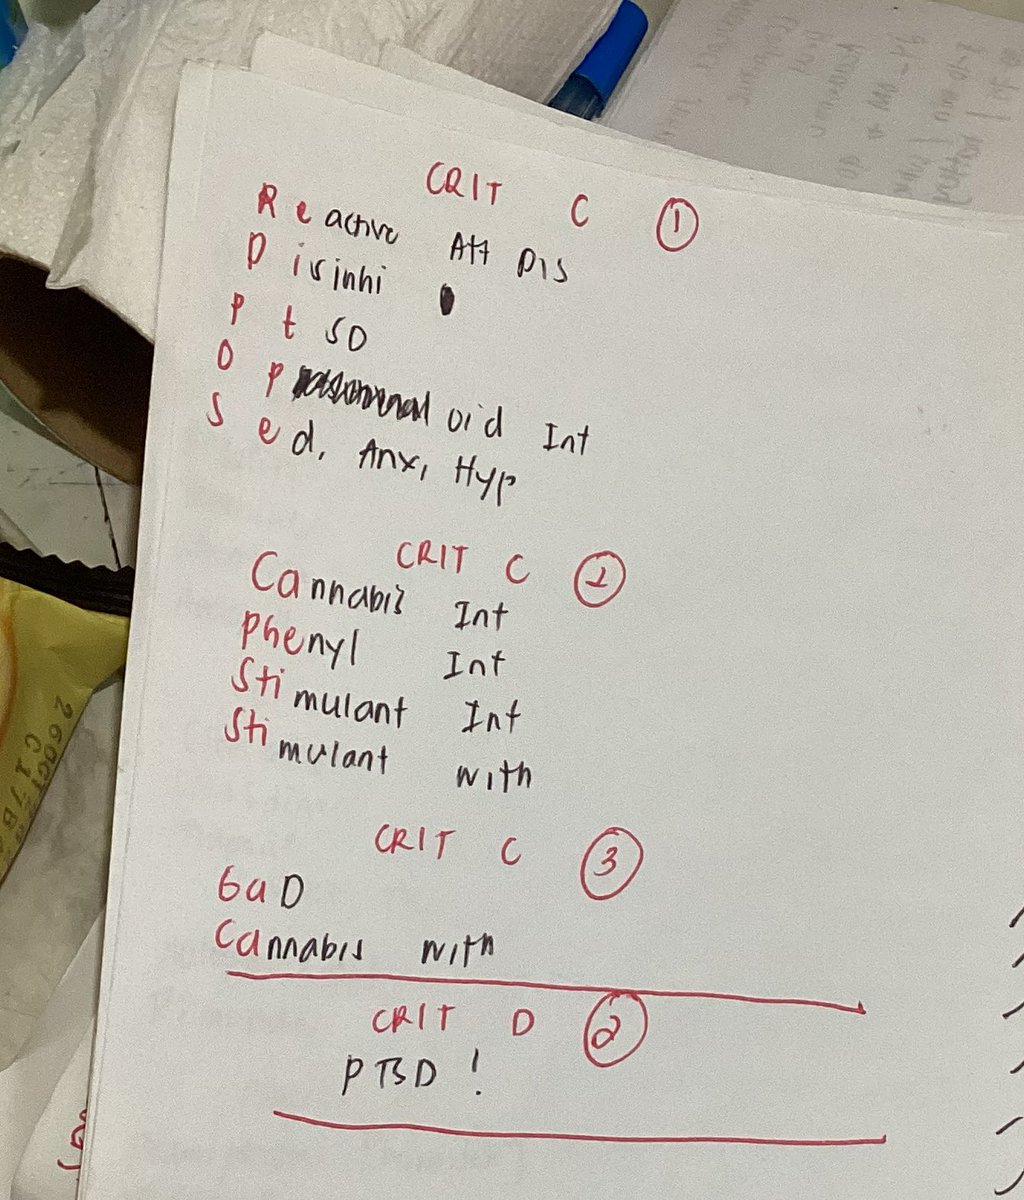 CRIT C 1
Reactive Att Dis
Disinhi
PtSD
Opioid Int
Sed, Anx, Hyp
CRIT C 2
Cannabis Int
Phenyl Int
Stimulant Int
Stimulant With
CRIT C 3
GaD
Cannabis With
CRIT D 2
PTSD!